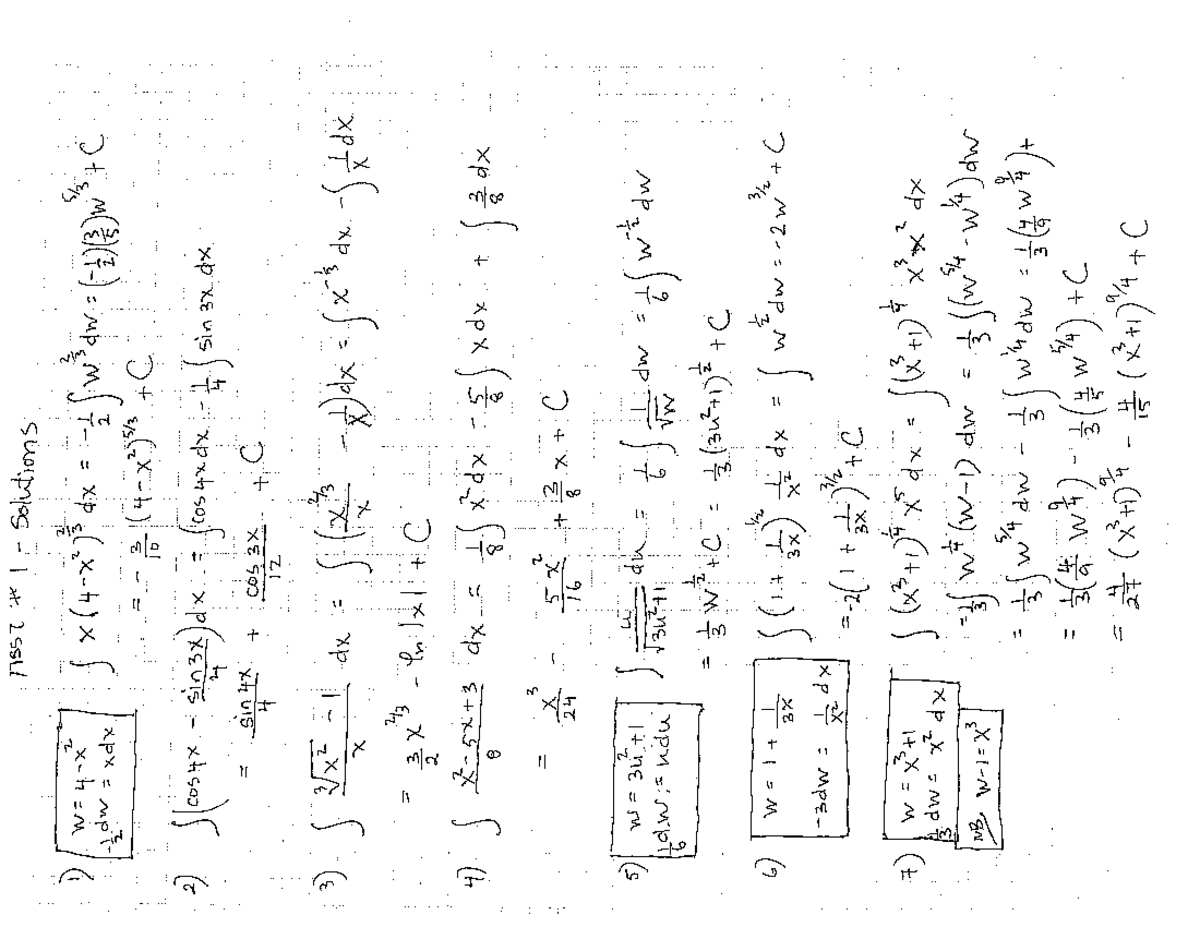 Ass't # 1 - Solutions
1) w = 4-x² -½dw = xdx ∫ x(4-x²)^{2/3} dx = -½∫w^{2/3}dw = (-½)(3/5)w^{5/3} + C
= -3/10 (4-x²)^{5/3} + C
2) ∫(cos4x - sin3x/4)dx = ∫cos4xdx - ¼∫sin 3x dx
= sin4x/4 + cos3x/12 + C
3) ∫ (∛x² - 1)/x dx = ∫(x^{2/3}/x - 1/x)dx = ∫x^{-1/3} dx - ∫1/x dx
= 3/2 x^{2/3} - ln|x| + C
4) ∫ (x²-5x+3)/8 dx = 1/8∫x²dx - 5/8∫xdx + ∫3/8 dx
= x³/24 - 5x²/16 + 3/8 x + C
5) w = 3u²+1 1/6 dw = udu ∫ u/√(3u²+1) du = 1/6∫1/√w dw = 1/6∫w^{-½} dw
= 1/3 w^{½} + C = 1/3(3u²+1)^{½} + C
6) w = 1 + 1/3x -3dw = 1/x² dx ∫(1 + 1/3x)^{1/2} 1/x² dx = ∫ w^{½} dw = -2w^{3/2} + C
= -2(1 + 1/3x)^{3/2} + C
7) w = x³+1 1/3 dw = x² dx ∫(x³+1)^{¼} x⁵ dx = ∫(x³+1)^{¼} x³ x² dx
NB. w-1 = x³ = 1/3∫w^{¼}(w-1)dw = 1/3∫(w^{5/4} - w^{¼})dw
= 1/3∫w^{5/4}dw - 1/3∫w^{1/4}dw = 1/3(4/9 w^{9/4})+
= 1/3(4/9 w^{9/4}) - 1/3(4/5 w^{5/4}) + C
= 4/27 (x³+1)^{9/4} - 4/15 (x³+1)^{9/4} + C